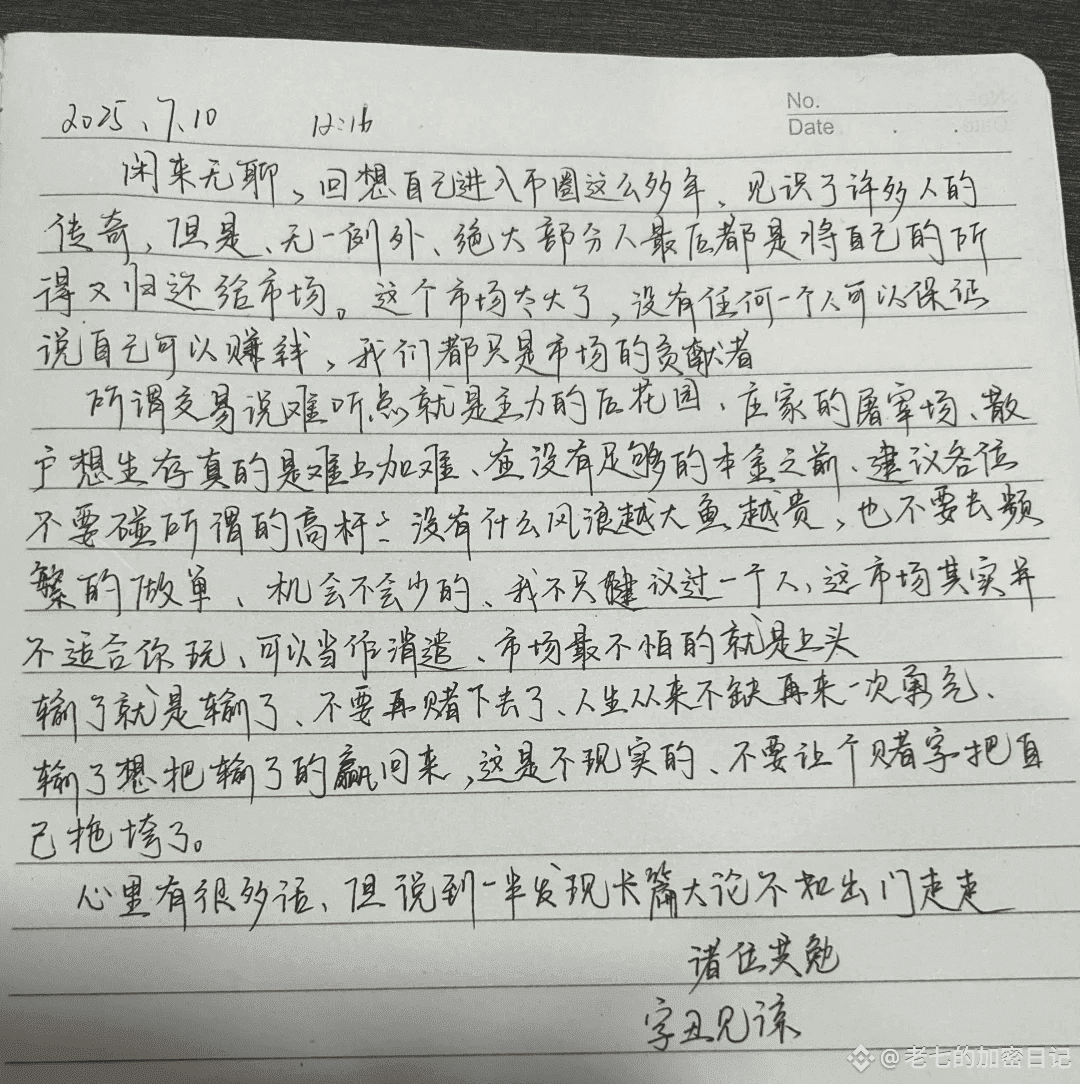 No.
Date . .
2025、7、10 12:16
闲来无聊、回想自己进入币圈这么多年、见识了许多人的
传奇、但是、无一例外、绝大部分人最后都是将自己的所
得又归还给市场。这个市场太大了，没有任何一个人可以保证
说自己可以赚钱，我们都只是市场的贡献者
所谓交易说难听点就是主力的后花园、庄家的屠宰场、散
户想生存真的是难上加难、在没有足够的本金之前、建议各位
不要碰所谓的高杆：没有什么风浪越大鱼越贵，也不要去频
繁的做单、机会不会少的、我不只建议过一个人、这市场其实并
不适合你玩、可以当作消遣、市场最不怕的就是上头
输了就是输了、不要再赌下去了、人生从来不缺再来一次勇气、
输了想把输了的赢回来，这是不现实的、不要让个赌字把自
己拖垮了。
心里有很多话、但说到一半发现长篇大论不如出门走走
诸位共勉
字丑见谅
@老七的加密日记